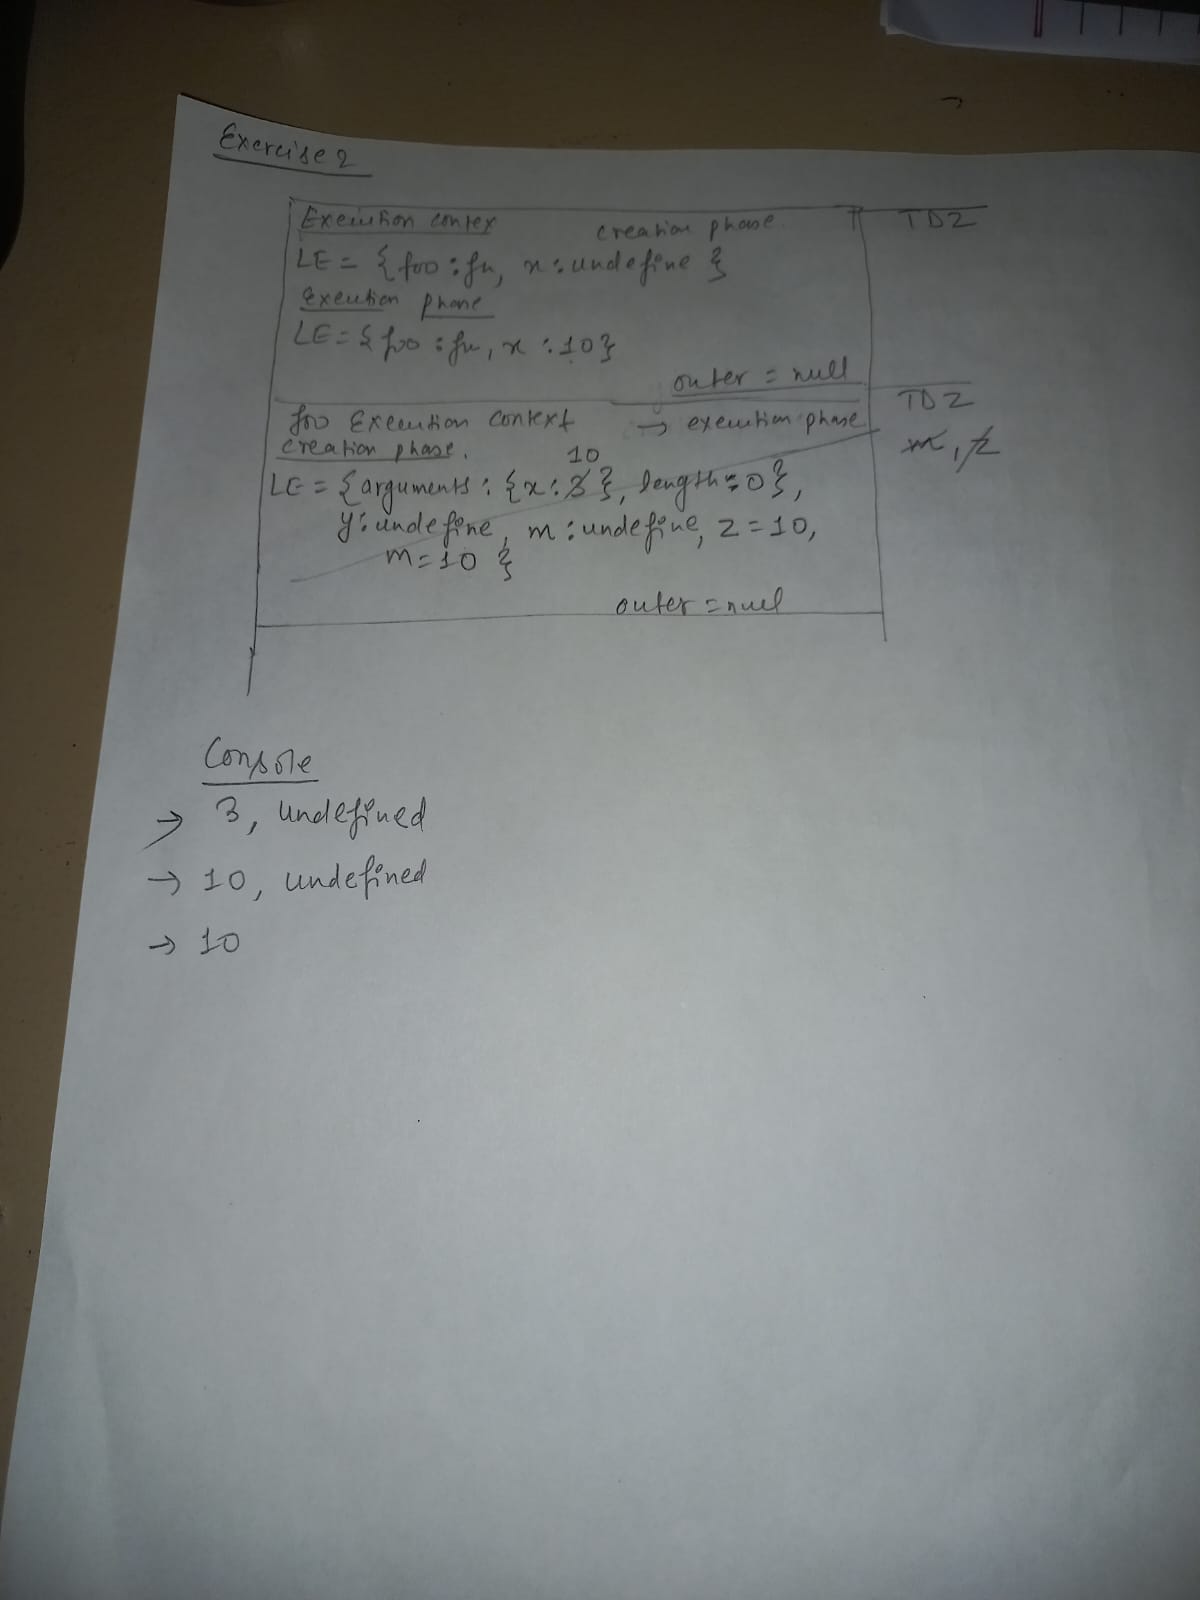 Exercise 2
Execution contex creation phase TDZ
LE = { foo : fn, x : undefine }
Execution phase
LE = { foo : fn, x : 10 }
outer = null
foo Execution context → execution phase TDZ
creation phase. m, z
10
LE = { arguments : { x : 3 }, length = 0 },
y : undefine, m : undefine, z = 10,
m = 10 }
outer = null
Console
→ 3, undefined
→ 10, undefined
→ 10